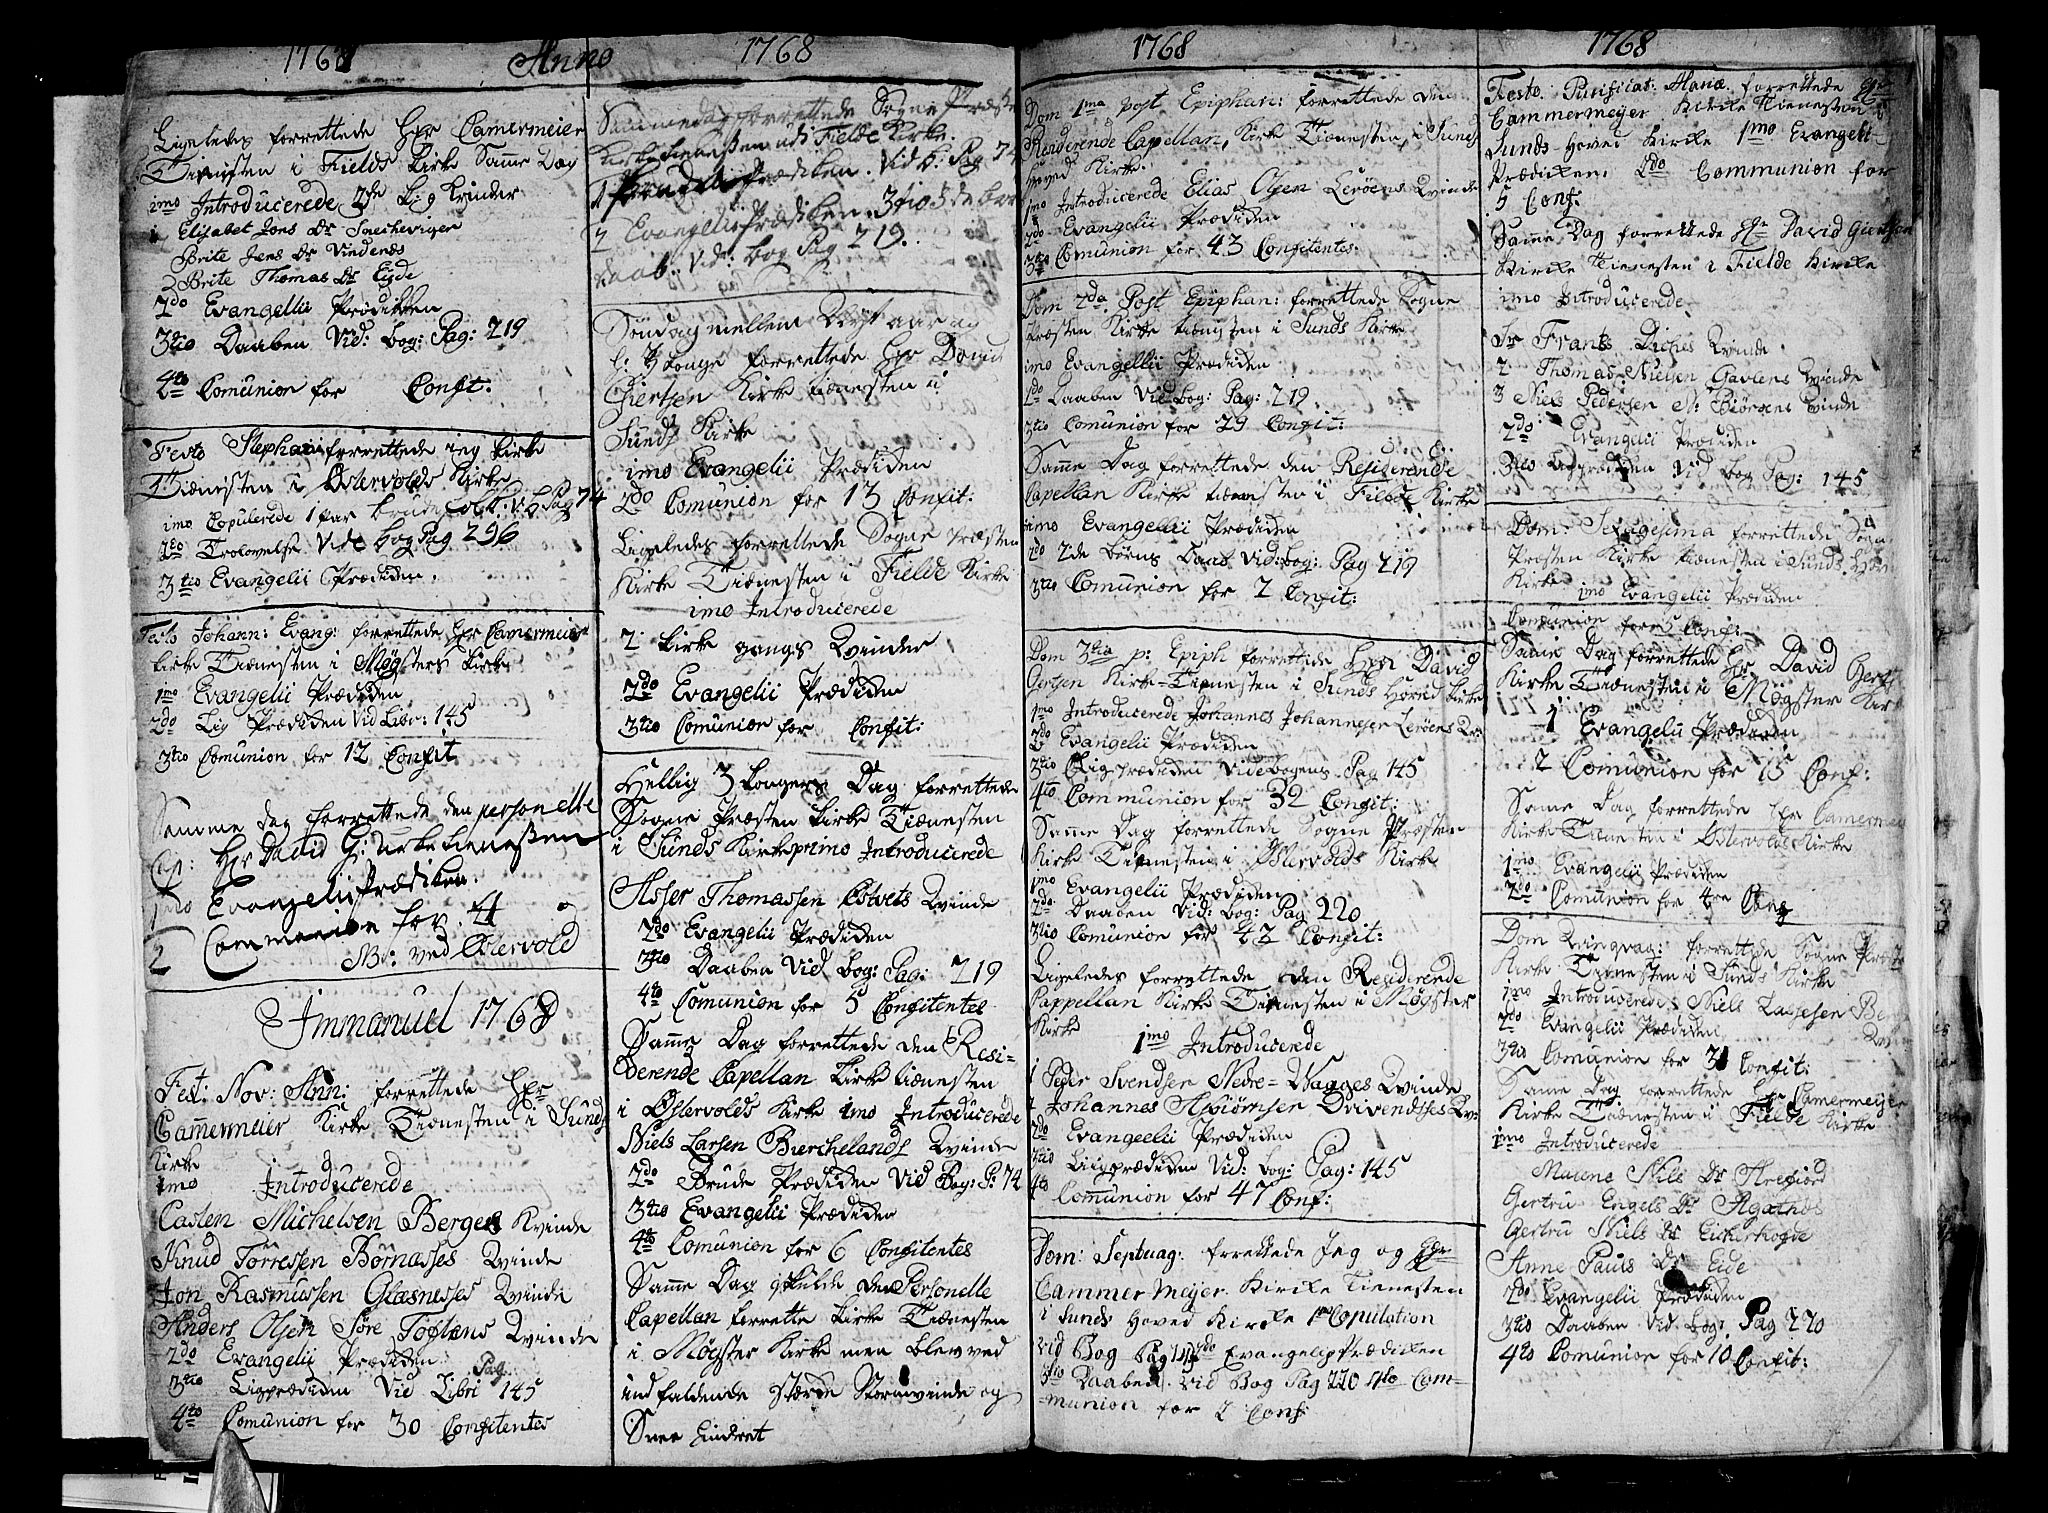 1768
Anno
Ligeledes forrettede Hr Camermeier
Tienisten i Fields Kirke Samme Dag
imo Introducerede 2de Lig Kvinder
1 Elisabet Jons Dr
Brite Jens Dr Vindenes
2 Brite Thomas Dr Eide
2do Evangelii Prædiken
3tio Daaben Vid: bog: Pag: 219
4to Comunion for Confit:
Festo Stephani forrettede jeg Kirke
Tiænesten i Østervolds Kirke
imo Copulerede 1 par Pag 74
2do Trolovelse Vide bog Pag 296
3tio Evangelii Prædiken.
Festo Johann: Evang: forrettede Hr Camermeier
Kirke Tiænesten i Møgsters Kirke
1mo Evangelii Prædiken
2do Lig Prædiken Vid Libr: 145
3tio Comunion for 12 Confit
Samme dag forrettede den personelle
Cap: Hr David G: Kirketienesten
1mo Evangelii Prædiken.
2 Communion for 4
NB: ved Østervold
Immanuel 1768
Fest: Nov: Ann: forrettede Hr
Camermeier Kirke Tiænesten i Sunds
Kirke
imo Introducerede
Casten Michelsen Berges Kvinde
Knud Torresen Børnæsses Qvinde
Jon Rasmussen Glæsnesses Qvinde
Anders Olsen Søre Qvinde
2do Evangelii Prædiken Pag
3tio Ligprædiken Vid Libri 145
4to Comunion for 30 Confitentes
1768
Sammedag forrettede Sogne Præsten
Kirketienesten udi Fielde Kirke.
1 Prædiken. Vid b. Pag 74
2 Evangelii Prædiken. 3tio
daab. Vid: bog Pag 219.
Søndag mellem Nyt aar og
H: 3 Konge forrettede Hr David
Giertsen Kirke tiænesten i
Sunds Kirke
imo Evangelii Prædiken
2do Comunion for 13 Confit:
Ligeledes forrettede Sogne Præsten
Kirke Tiænesten i Fielde Kirke
imo Introducerede
2 Kirke gangs Qvinder
2do Evangelii Prædiken
3tio Comunion for Confit:
Hellig 3 Kongers Dag forrettede
Sogne Præsten Kirke Tiænesten
i Sunds Kirke primo Introducerede
Asser Thomassen Østvets Qvinde
2do Evangelii Prædiken
3tio Daaben Vid bog: Pag: 219
4to Comunion for 5 Confitentes
Samme Dag forrettede den Resi-
derende Capellan Kirke tiænesten
i Østervolds Kirke imo Introducerede
Niels Larsen Bierchelands Qvinde
2do Brude Prædiken Vid Bog: P: 74
3tio Evangelii Prædiken
4to Comunion for 6 Confitentes
Samme Dag skulde den Personelle
Capellan forrette Kirke Tiænesten
i Møgster Kirke men blev ved
indfaldende stærke Stormvinde og
Snee hindret
1768
Dom 1ma post Epiphan: forrettede den
Residerende Capellan, Kirke Tiænesten i Sunds
Hoved Kirke.
1mo Introducerede Elias Olsen Lerøens Qvinde
2do Evangelii Prædiken
3tio Comunion for 43 Confitentes.
Dom 2da Post Epiphan: forrettede Sogne
Præsten Kirke tiænesten i Sunds Kirke
imo Evangelii Prædiken
2do Daaben Vid bog: Pag: 219
3tio Comunion for 29 Confit:
Samme Dag forrettede den Residerende
Capellan Kirke tiænesten i Fielde Kirke
imo Evangelii Prædiken
2do 2de Børns Daab Vid: bog: Pag 219
3tio Comunion for 2 Confit:
Dom 3tia p: Epiph forrettede Herr David
Gertsen Kirke-Tiænesten i Sunds Hoved Kirke
1mo Introducerede Johannes Johannesen Lerøens Qv:
2do Evangelii Prædiken
3tio Ligprædiken Vide bogens Pag 145
4to Communion for 32 Confit:
Samme Dag forrettede Sogne Præsten
Kirke Tiænesten i Østervolds Kirke
1mo Evangelii Prædiken
2do Daaben Vid: bog: Pag 220
3tio Comunion for 43 Confit:
Ligeledes forrettede den Residerende
Cappellan Kirke Tiænesten i Møgster
Kirke
1mo Introducerede
1 Peder Svendsen Nedre-Vagges Qvinde
2 Johannes Asbiørnsen Qv:
2do Evangelii Prædiken
3tio Ligprædiken Vid: bog: Pag: 145
4to Comunion for 47 Conf:
Dom: Septuag: forrettede Jeg og Hr
Cammermeyer Kirke Tienesten
i Sunds Hoved Kircke 1mo Copulation
vid Bog Pag 2do Evangelii Prædicken
3tio Daaben. vid Bog Pag 220 4to Com-
munion for 2 Conf:
1768
Festo Purificat: Mariæ forrettede Hr
Cammermeyer Kirke Tienesten i
Sunds Hoved Kirke 1mo Evangeli-
Prædiken, 2do Communion for
5 Conf:
Samme Dag forrettede Hr David Giertsen
Kircke Tienesten i Fielde Kirke
imo Introducerede
Sr Frants Qvinde
2 Thomas Nielsen Gavlens Qvinde
3 Niels Pedersen N: Biørnens Qvinde
2do Evangelii Prædiken
3tio Ligprædiken Vid bog Pag: 145
Dom: Sexagesima forrettede Sogne
Præsten Kirke tiænesten i Sunds Hov:
Kirke. imo Evangelii Prædiken
Comunion for 5 Conf:
Samme Dag forrettede Hr David Gierts:
Kirke Tiænesten i Møgster Kirke
1 Evangelii Prædiken
2 Comunion for 15 Conf:
Samme Dag forrettede Hr Camermey
Kirke Tiænesten i Østervolds Kirke
1mo Evangelii Prædiken
2do Comunion for 4re Conf
Dom Qvinqvag: forrettede Sogne Præsten
Kirke Tiænesten i Sunds Kirke
1mo Introducerede Niels Lassesen
Qv
2do Evangelii Prædiken
3tio Comunion for 31 Confit:
Samme Dag forrettede Hr Camermeijer
Kirke Tiænesten i Fielde Kirke
imo Introducerede
Marene Nils Dr Trefiord
Gertru Engels Dr Agatnes
Gertru Niels Dr
Anne Pauls Dr Eide
2do Evangelii Prædiken
3tio Daaben Vid. bog: Pag 220
4to Comunion for 10 Confit: